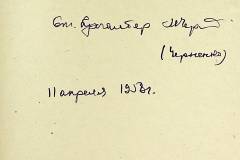 Ст. бухгалтер
(Черненко)
11 апреля 1958г.